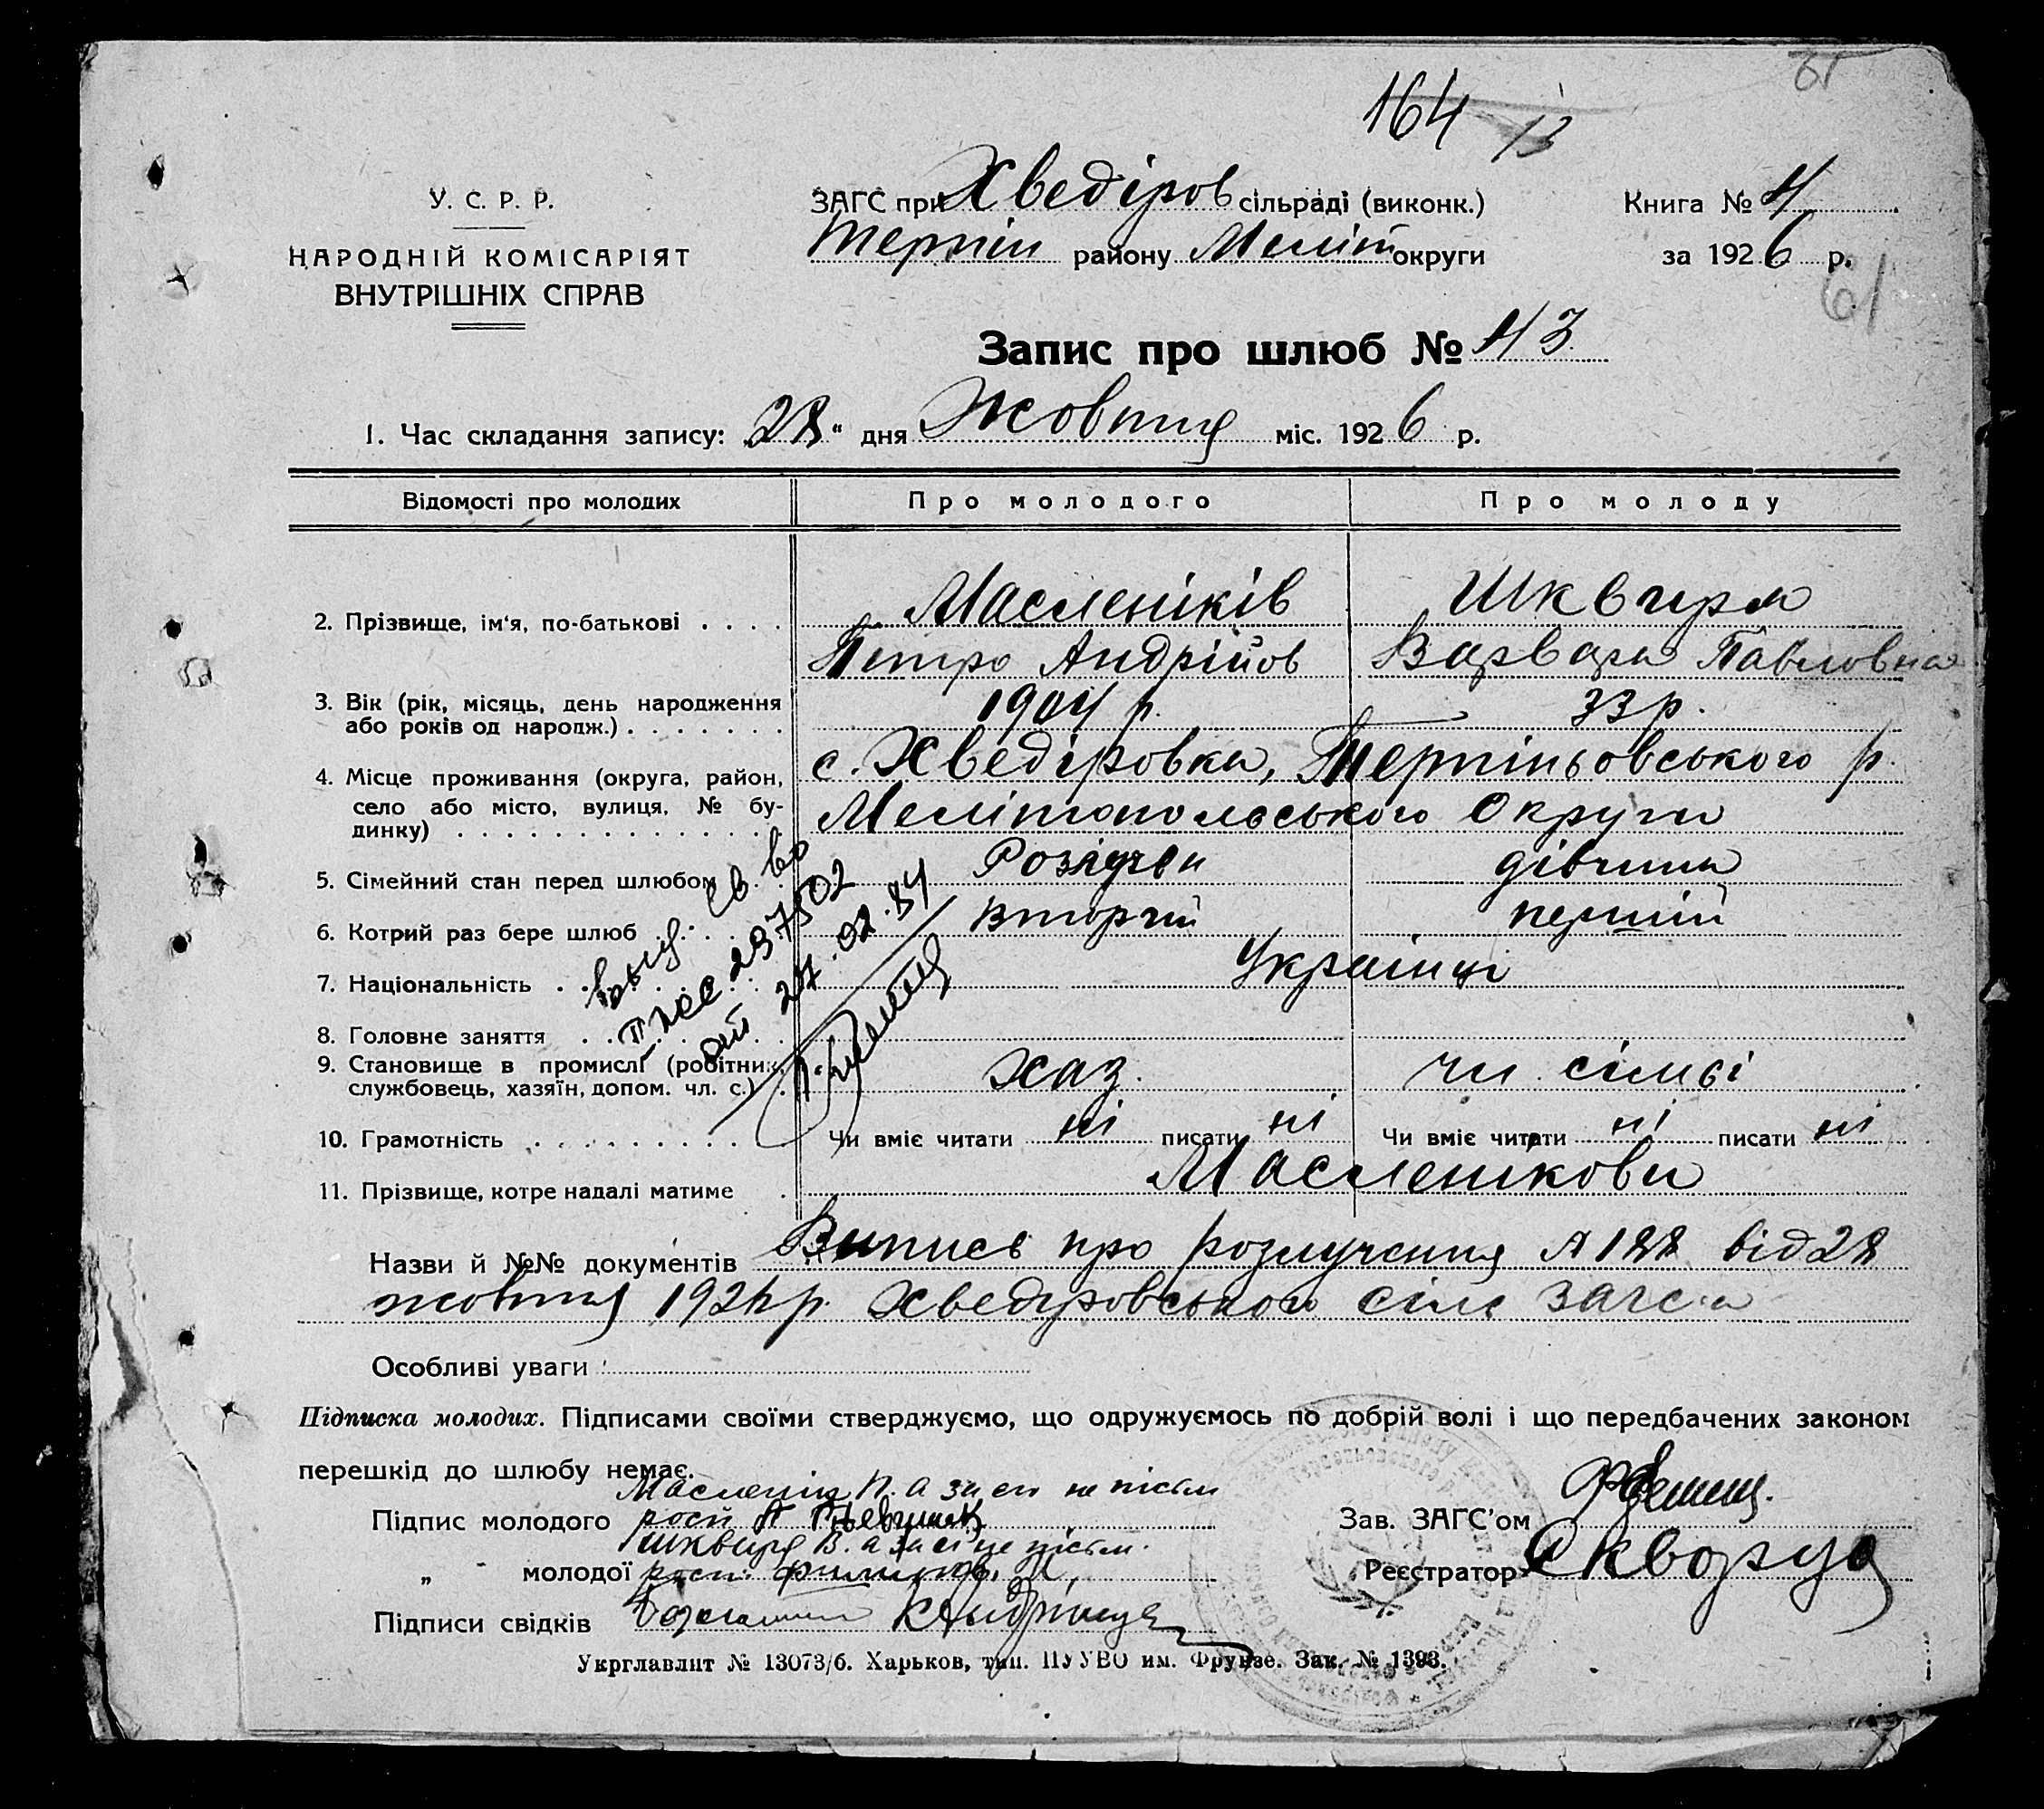 ЗГ
164 13
У. С. Р. Р.
НАРОДНІЙ КОМІСАРІЯТ
ВНУТРІШНІХ СПРАВ
ЗАГС при Хведіров сільраді (виконк.)
Терпін району Меліт округи
Книга № 4
за 1926 р.
61
Запис про шлюб № 43
1. Час складання запису: 28 " дня Жовтня міс. 1926 р.
Відомості про молодих Про молодого Про молоду
2. Прізвище, ім'я, по-батькові . . . . Маслеників Шквиря
Петро Андрійов Варвара Павловна
3. Вік (рік, місяць, день народження
або років од народж.) . . . . . . . 1904 р. 33 р.
4. Місце проживання (округа, район,
село або місто, вулиця, № бу-
динку) . . . . . . . . . . . . .
с. Хведіровка, Терпіньовського р.
Мелітопольського Округи
5. Сімейний стан перед шлюбом . . . дівчина
6. Котрий раз бере шлюб . . . . Вторий перший
7. Національність . . . . Українці
8. Головне заняття . . . .
9. Становище в промислі (робітник,
службовець, хазяїн, допом. чл. с.) . хаз. чл. сімьї
10. Грамотність . . . . . . . . . Чи вміє читати ні писати ні Чи вміє читати ні писати ні
11. Прізвище, котре надалі матиме . Масленікови
237502
от 27.02.84
Назви й №№ документів Випись про розлучення № 188 від 28
жовтня 1926 р. Хведіровського сіль загса
Особливі уваги
Підписка молодих. Підписами своїми стверджуємо, що одружуємось по добрій волі і що передбачених законом
перешкід до шлюбу немає.
Підпис молодого
„ молодої
Підписи свідків
Зав. ЗАГС'ом
Реєстратор Скворцо
Укрглавлит № 13073/6. Харьков, тип. ПУУВО им. Фрунзе. Зак. № 1393.